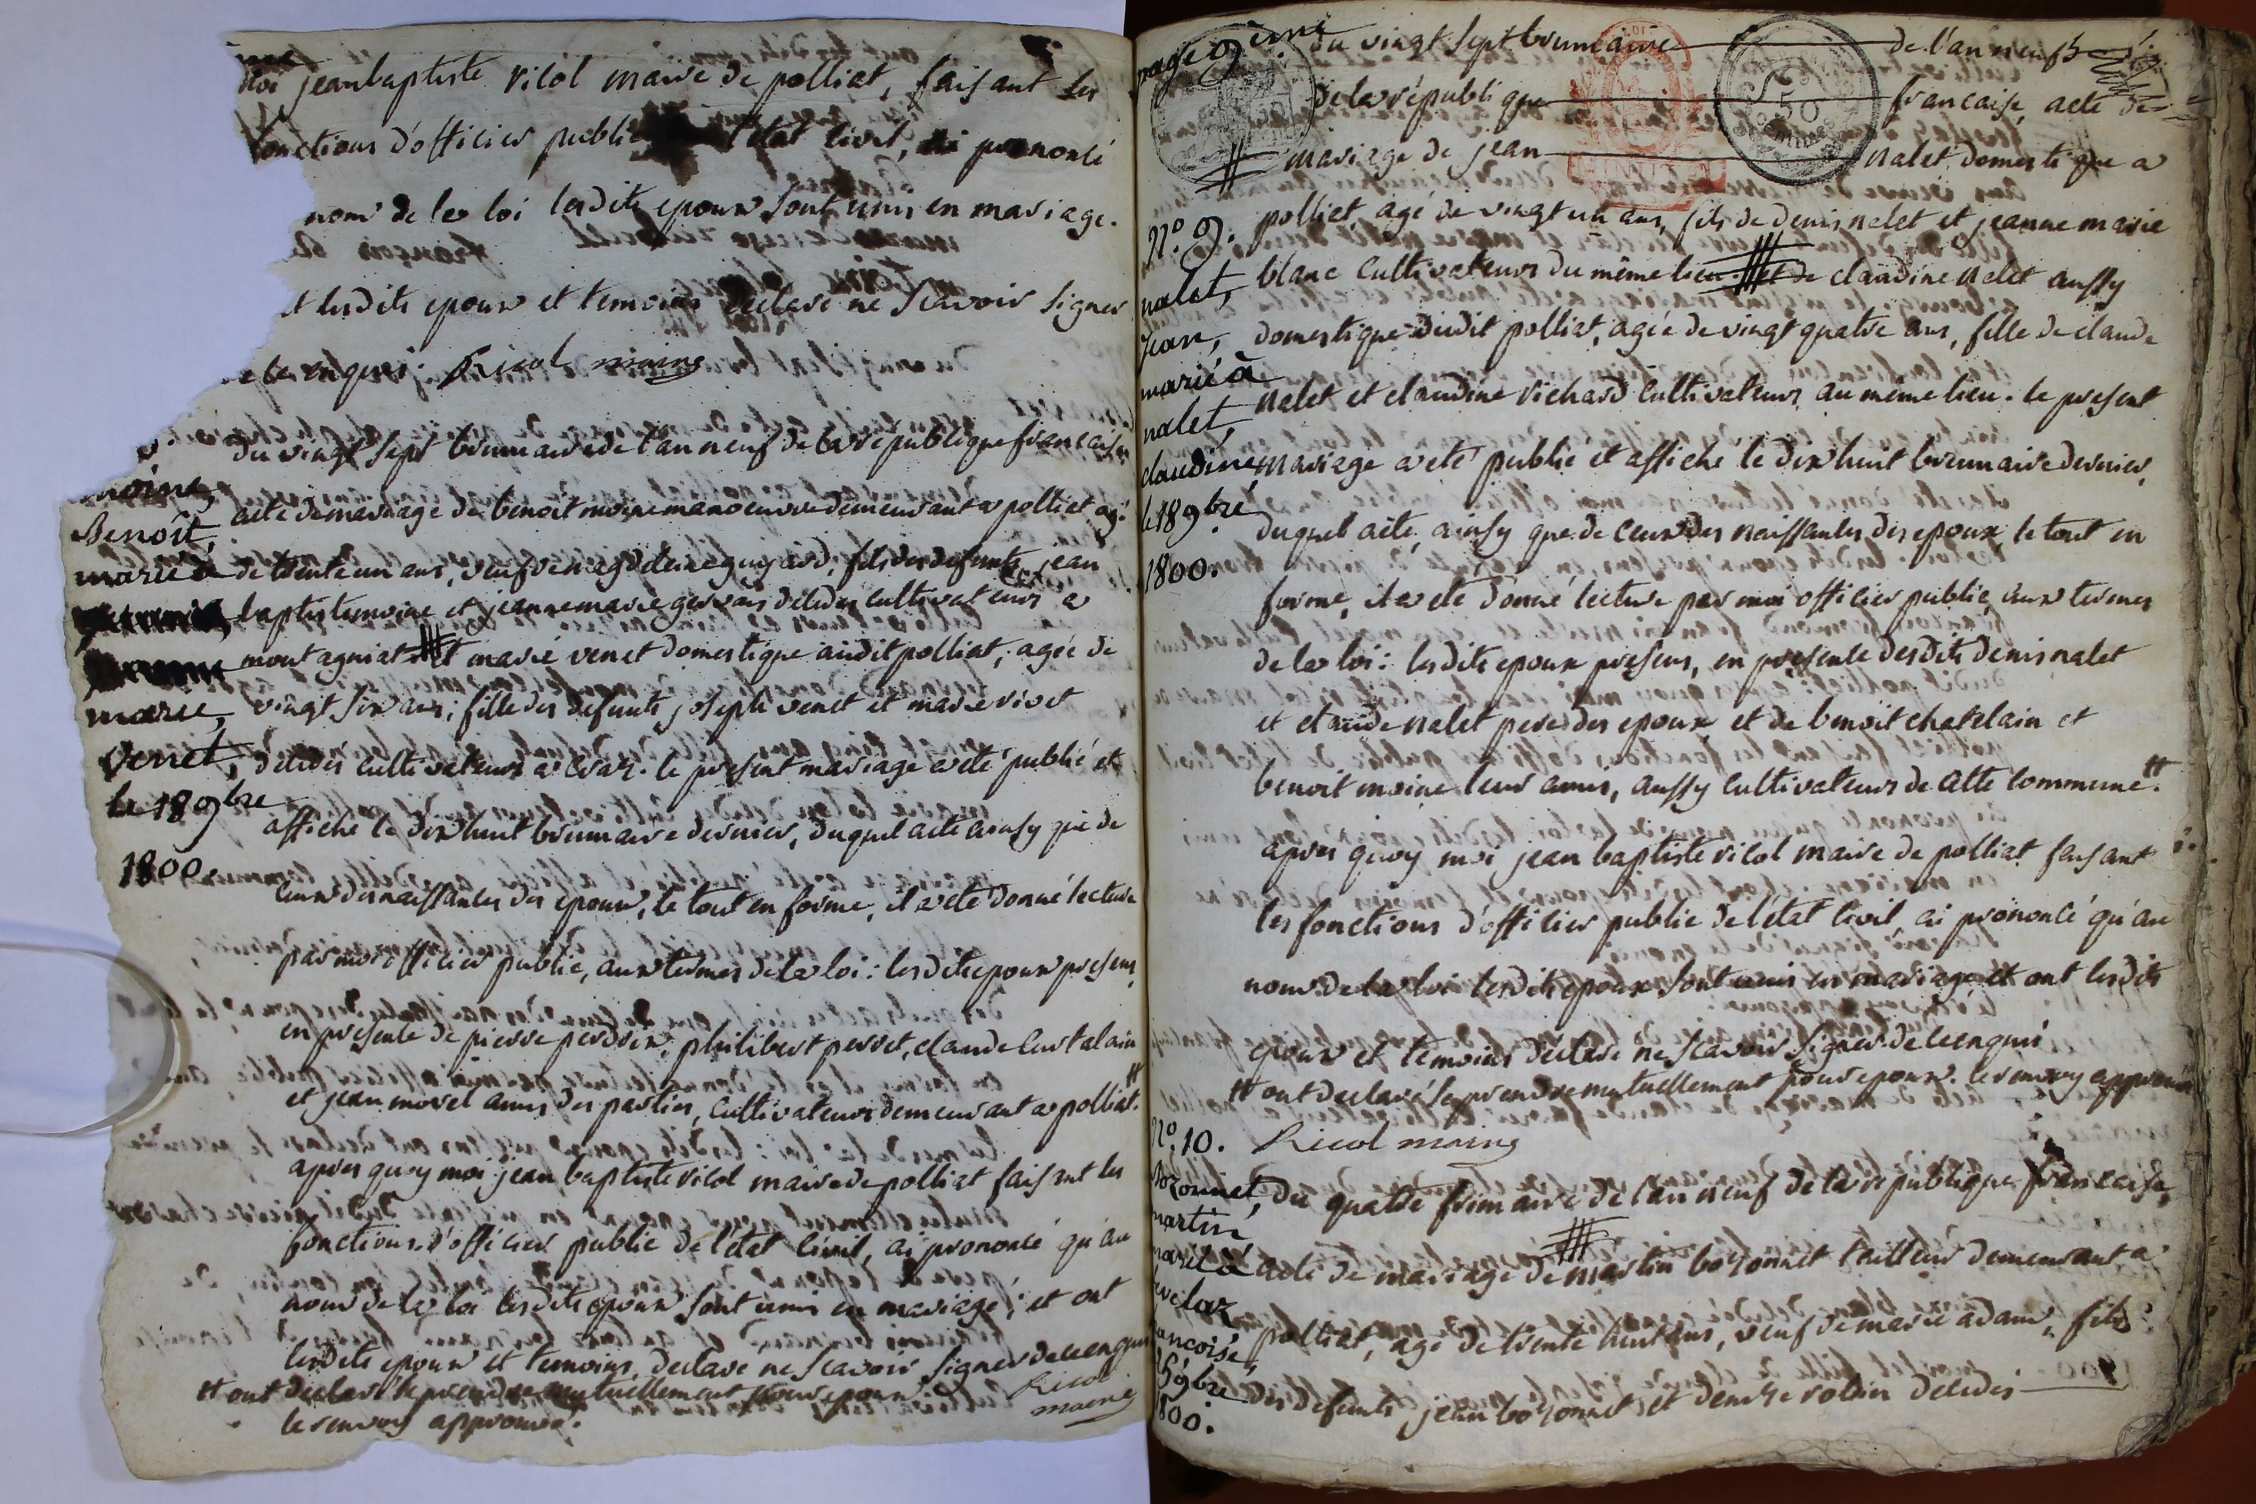 moi jean baptiste ricol maire de polliat, faisant les
fonctions d'officier public l'état civil, ai prononcé
nom de la loi lesdits epoux sont unis en mariage.
et lesdits epoux et temoins declaré ne scavoir signer
de ce enquis. Ricol maire
du vingt sept brumaire de l'an neuf de la république francaise
acte de mariage de benoit moine manoeuvre demeurant a polliat agé
de trente un ans, veuf en fils des defunts jean
baptiste moine et jeanne marie gervais decedes cultivateurs a
montagniat et marie venet domestique audit polliat, agée de
vingt six ans; fille des defunts joseph venet et marie rivet
décédés cultivateurs a cras. le present mariage a eté publié et
affiché le dix huit brumaire dernier, duquel acte ainsy que de
ceux des naissances des epoux, le tout en forme, il a eté donné lecture
par moi officier public, aux termes de la loi: lesdits epoux presens,
en presence de pierre perdrix, philibert perret, claude curtalain
et jean morel amis des parties, cultivateurs demeurant a polliat.#
apres quoy moi jean baptiste ricol maire de polliat faisant les
fonctions d'officier public de l'état civil, ai prononcé qu'au
nom de la loi lesdits epoux sont unis en mariage; et ont
lesdits epoux et temoins declaré ne scavoir signer de ce enquis
# ont declaré se prendre mutuellement pour epoux.
le renvoy approuvé.
Ricol
maire
moine,
Benoît,
marié à
marie,
Venet,
le 18 9bre
1800.
page 9ème
du vingt sept brumaire de l'an neuf
de la république francaise, acte de
mariage de jean nalet domestique a
polliat, agé de vingt un ans, fils de denis nalet et jeanne marie
blanc cultivateurs du même lieu et de claudine nalet aussy
domestique dudit polliat, agée de vingt quatre ans, fille de claude
nalet et claudine richard cultivateurs au même lieu. le present
mariage a eté publié et affiché le dix huit brumaire dernier,
duquel acte, ainsy que de ceux des naissances des epoux le tout en
forme, il a eté donné lecture par moi officier public, aux termes
de la loi: lesdits epoux presens, en presence desdits denis nalet
et claude nalet peres des epoux et de benoit chatelain et
benoit moine leurs amis, aussy cultivateurs de cette commune.#
apres quoy moi jean baptiste ricol maire de polliat faisant
les fonctions d'officier public de l'état civil, ai prononcé qu'au
nom de la loi lesdits epoux sont unis en mariage et ont lesdits
epoux et temoins declaré ne scavoir signer de ce enquis
# ont declaré se prendre mutuellement pour epoux. le renvoy approuvé
Ricol maire
N.º 9.
nalet,
jean,
marié à
nalet,
claudine,
le 18 9bre
1800.
du quatre frimaire de l'an neuf de la république francaise,
acte de mariage de martin bozonnet tailleur demeurant a
polliat, agé de trente huit ans, veuf de marie adam, fils
des defunts jean bozonnet et denise robin decedés
N.º 10.
Bozonnet,
martin
marié à
francoise,
9bre
1800.
50